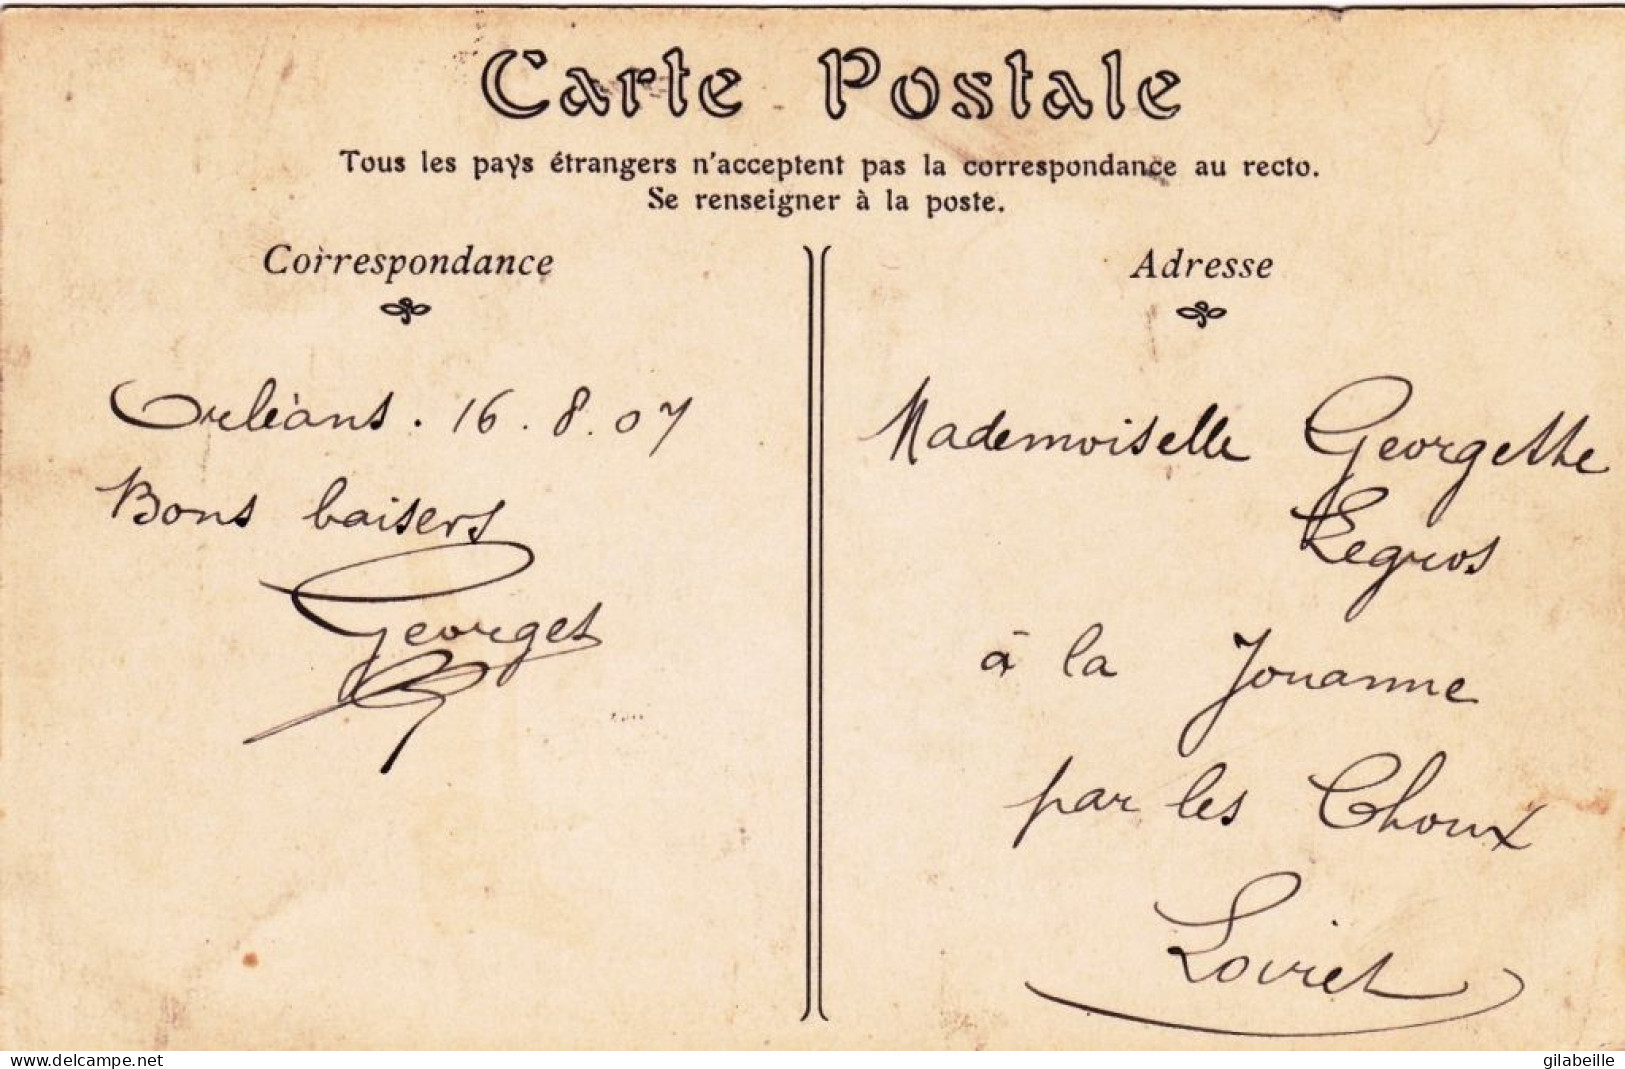 Carte Postale
Tous les pays étrangers n'acceptent pas la correspondance au recto.
Se renseigner à la poste.
Correspondance
Orléans. 16. 8. 07
Bons baisers
Georges
Adresse
Mademoiselle Georgette
Legros
à la Jouanne
par les Choux
Loiret
www.delcampe.net
gilabeille